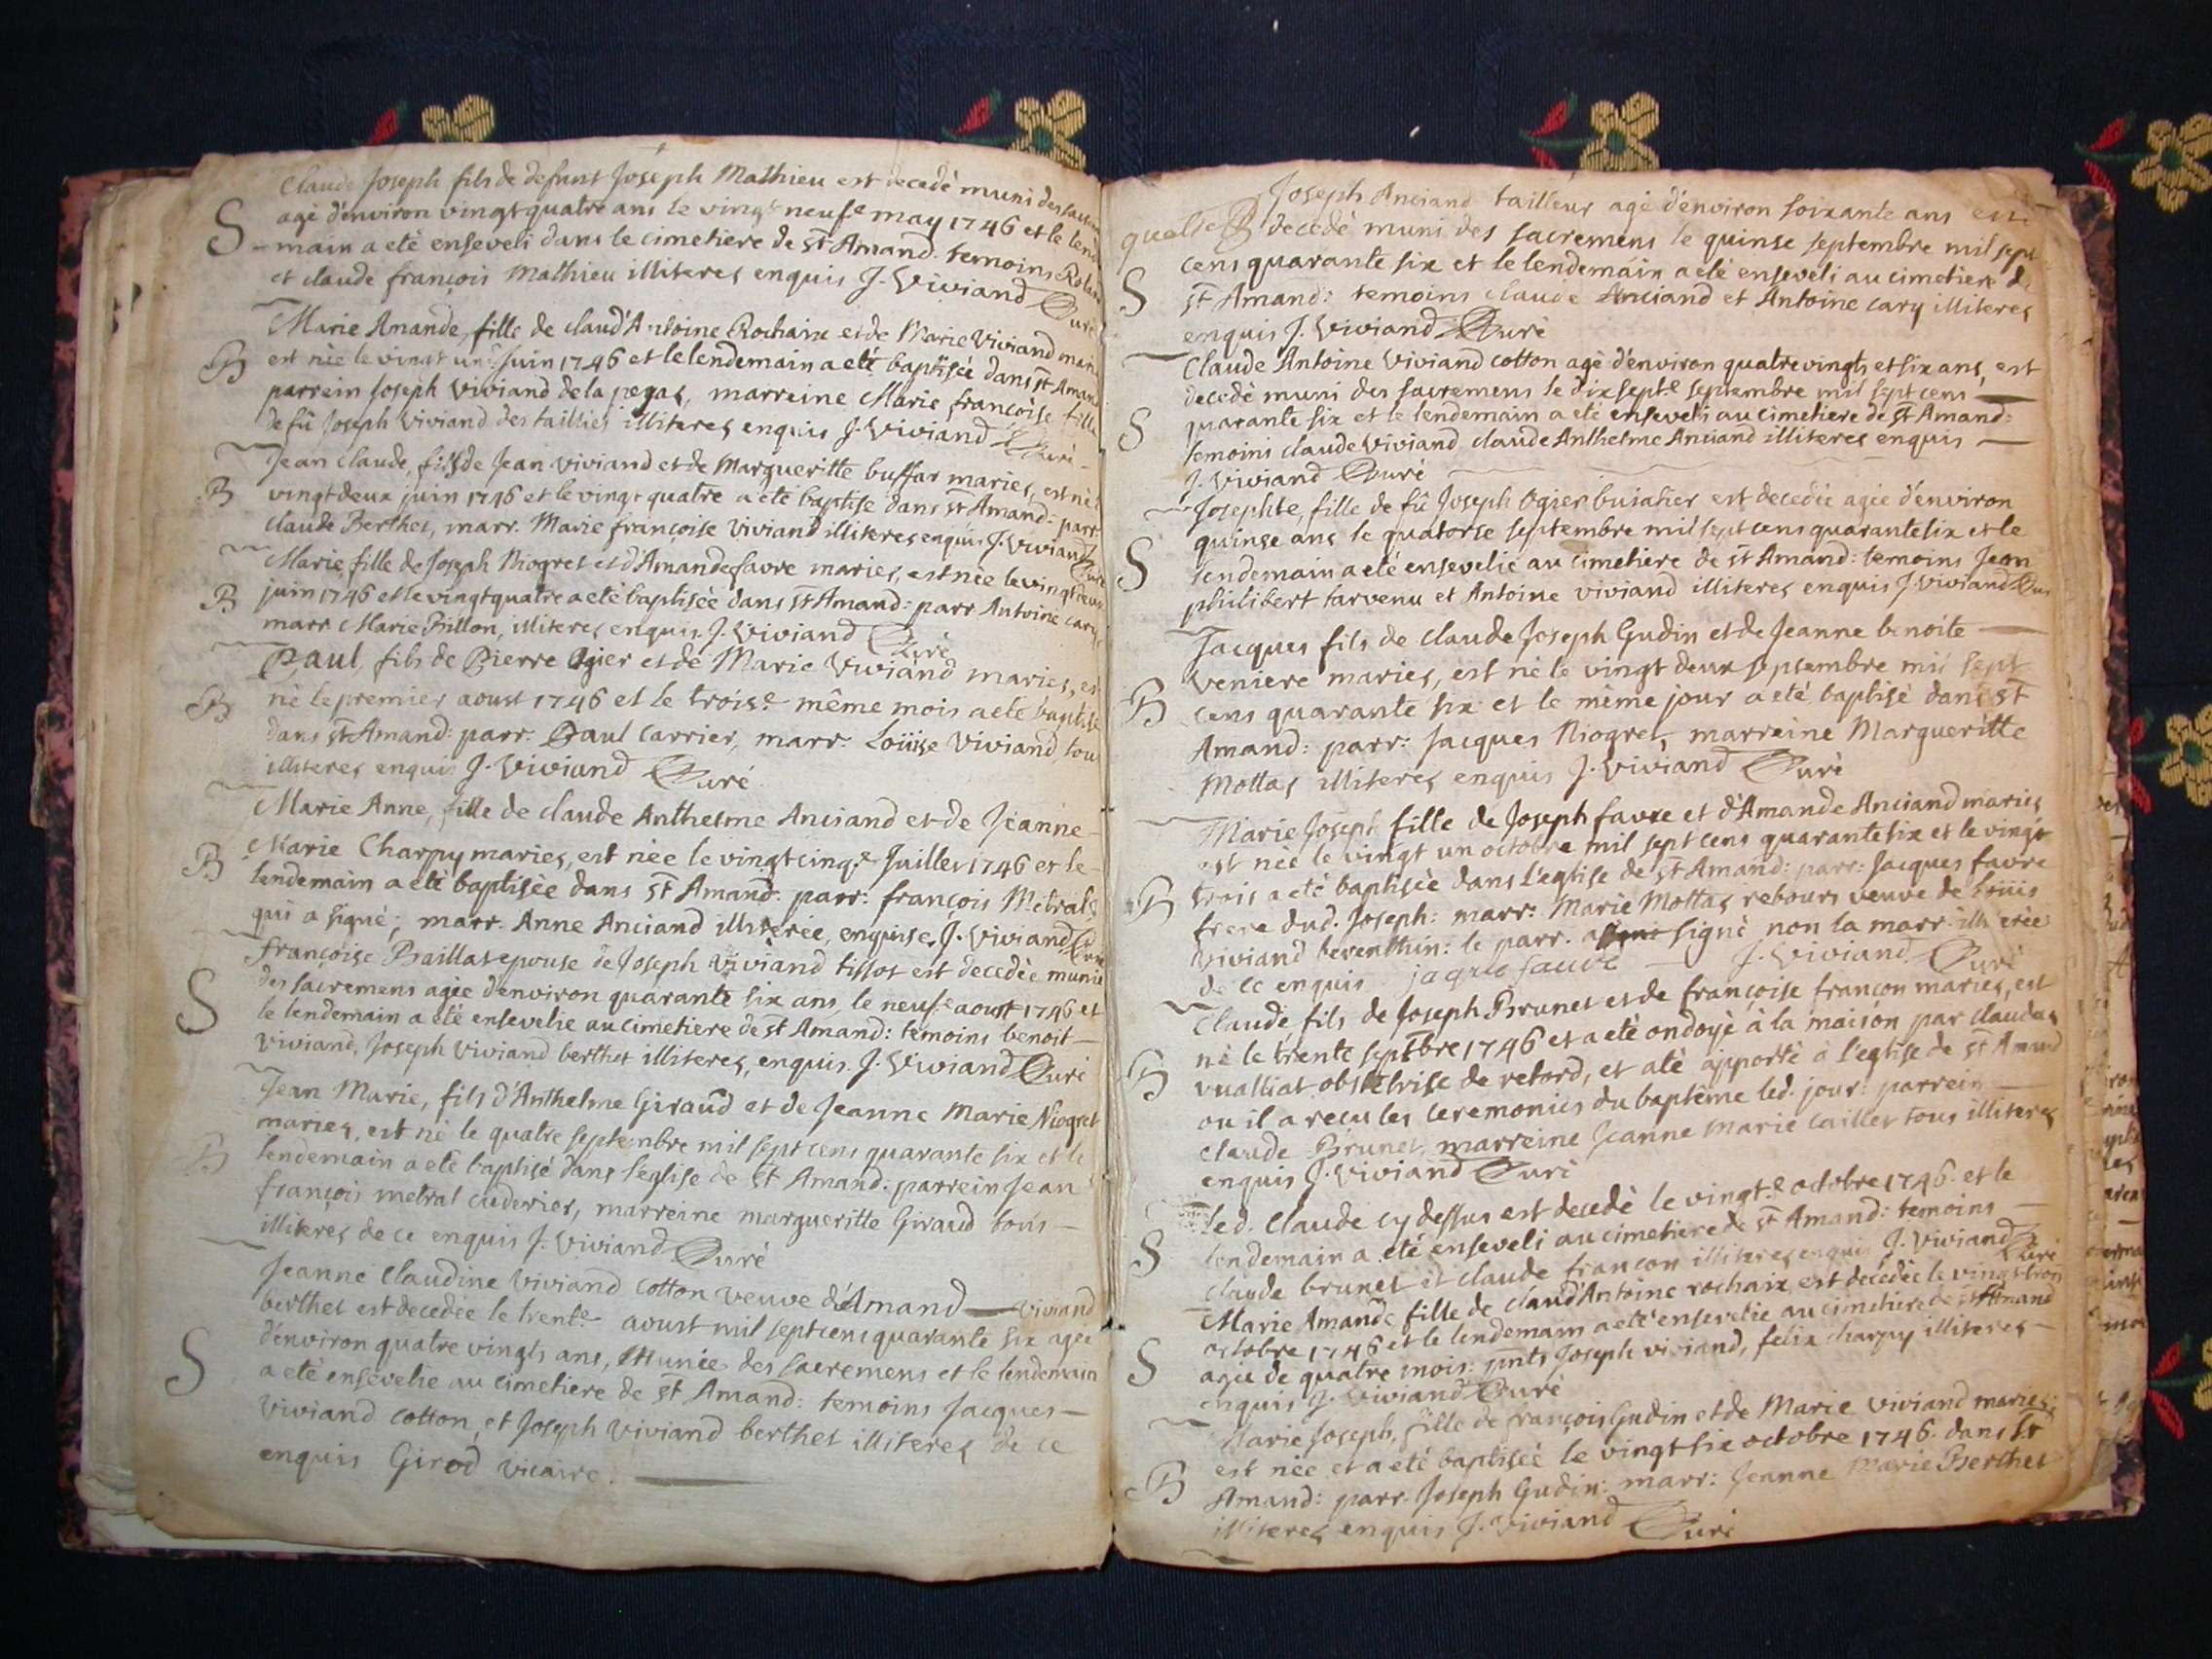 Claude Joseph fils de defunt Joseph Mathieu est decedé muni des
S agé d'environ vingt quatre ans le vingt neuf.e may 1746 et le lend
main a eté enseveli dans le cimetiere de st Amand. temoins
et claude françois Mathieu illiteres enquis J. Viviand Curé
Marie Amande, fille de claud'Antoine Rochaix et de Marie Viviand
B est née le vingt un.e Juin 1746 et le lendemain a eté baptisée dans st Amand
parrein Joseph Viviand de la pegas, marreine Marie françoise fille
de fû Joseph Viviand des taillies illiteres enquis J. Viviand Curé
Jean claude, fils de Jean Viviand et de Margueritte buffar maries, est né
B vingt deux juin 1746 et le vingt quatre a eté baptise dans st Amand: parr
claude Berthet, marr. Marie françoise Viviand illiteres enquis J. Viviand Curé
Marie, fille de Joseph Niogret et d'Amande favre maries, est née le vingt
B juin 1746 et le vingt quatre a eté baptisée dans st Amand: parr Antoine cary
marr Marie Brillon, illiteres enquis. J. Viviand Curé
Paul, fils de Pierre Ogier et de Marie Viviand maries, est
B né le premier aoust 1746 et le trois.e même mois a eté baptisé
dans st Amand: parr. Paul Carrier, marr. Loüise Viviand, tous
illiteres enquis J. Viviand Curé
Marie Anne, fille de claude Anthelme Anciand et de Jeanne
B Marie Charpy maries, est née le vingt cinq.e Juillet 1746 et le
lendemain a eté baptisée dans st Amand. parr: françois Metral
qui a signé; marr. Anne Anciand illiterée, enquise. J. Viviand Curé
françoise Baillat epouse de Joseph Viviand tissot est decedée munie
S des sacremens agée d'environ quarante six ans, le neuf.e aoust 1746 et
le lendemain a eté ensevelie au cimetiere de st Amand: temoins benoit
Viviand, Joseph Viviand berthet illiteres, enquis. J. Viviand Curé
Jean Marie, fils d'Anthelme Giraud et de Jeanne Marie Niogret
maries, est né le quatre septembre mil sept cens quarante six et le
B lendemain a eté baptisé dans l'eglise de st Amand. parrein Jean
françois metral cuderier, marreine margueritte Giraud tous
illiteres de ce enquis J. Viviand Curé
Jeanne Claudine Viviand cotton veuve d'Amand Viviand
berthet est decedée le trent.e aoust mil sept cens quarante six agée
S d'environ quatre vingts ans, Munie des sacremens et le lendemain
a eté ensevelie au cimetiere de st Amand: temoins Jacques
Viviand cotton, et Joseph Viviand berthet illiteres de ce
enquis Girod vicaire.
Joseph Anciand tailleur agé d'environ soixante ans est
decedé muni des sacremens le quinse septembre mil sept
S cens quarante six et le lendemain a eté enseveli au cimetiere de
st Amand: temoins claude Anciand et Antoine cary illiteres
enquis J. Viviand Curé
Claude Antoine Viviand cotton agé d'environ quatre vingts et six ans, est
decedé muni des sacremens le dix sept.e septembre mil sept cens
S quarante six et le lendemain a eté enseveli au cimetiere de st Amand:
temoins claude Viviand claude Anthelme Anciand illiteres enquis
J. Viviand Curé
Josephte, fille de fû Joseph Ogier est decedée agée d'environ
quinse ans le quatorse septembre mil sept cens quarante six et le
S lendemain a eté ensevelie au cimetiere de st Amand: temoins Jean
philibert tarvenu et Antoine viviand illiteres enquis J. Viviand Curé
Jacques fils de claude Joseph Gudin et de Jeanne benoite
Veniere maries, est né le vingt deux septembre mil sept
B cens quarante six et le même jour a eté baptisé dans st
Amand: parr: Jacques Niogret, marreine Margueritte
Mottas illiteres enquis J. Viviand Curé
Marie Joseph fille de Joseph favre et d'Amande Anciand maries
est née le vingt un octobre mil sept cens quarante six et le vingt
B trois a eté baptisée dans l'eglise de st Amand: parr: Jacques favre
frere dud. Joseph: marr: Marie Mottas rebours veuve de Loüis
Viviand berenthin: le parr. a signé non la marr. illiterée
de ce enquis jaque favre J. Viviand Curé
Claude fils de Joseph Brunet et de françoise françon maries, est
né le trente septbre 1746 et a eté ondoyé à la maison par clauda
B vualliat obstetrise de retord, et a eté apporté à l'eglise de st Amand
ou il a recu les ceremonies du baptême led. jour: parrein
claude Brunet, marreine Jeanne Marie caillet tous illiteres
enquis J. Viviand Curé
led. Claude cy dessus est decedé le vingt.e octobre 1746. et le
S lendemain a eté enseveli au cimetiere de st Amand: temoins
claude brunet et claude françon illiteres enquis J. Viviand Curé
Marie Amande fille de claud'Antoine rochaix est decedée le vingt trois
octobre 1746 et le lendemain a eté ensevelie au cimetiere de st Amand
S agée de quatre mois: pnts Joseph viviand, felix charpy illiteres
enquis J. Viviand Curé
Marie Joseph, fille de françois Gudin et de Marie viviand maries
est née et a eté baptisée le vingt six octobre 1746. dans st
B Amand: parr. Joseph Gudin: marr: Jeanne Marie Berthet
illiteres enquis J. Viviand Curé